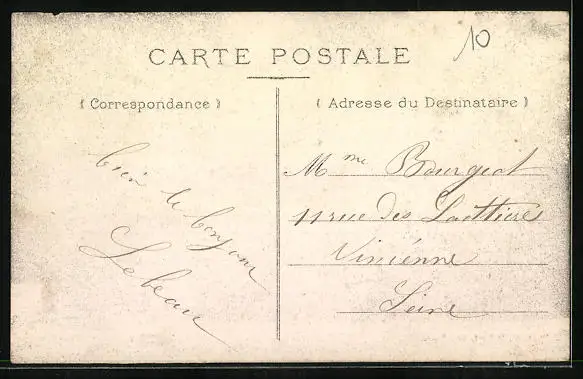 10
CARTE POSTALE
( Correspondance )
( Adresse du Destinataire )
bien le bonjour
Lebeau
Mme Bourgeot
11 rue des Laittieres
Vinienne
Seine